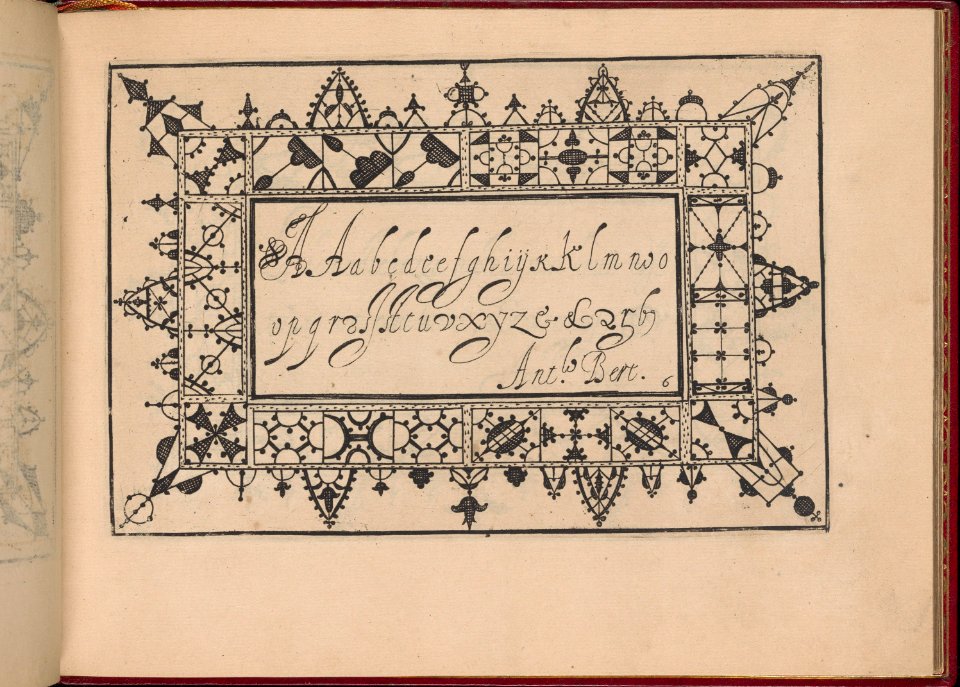 A A a b c d e e f g h i ij k K l m n v o
o p q r s ſ ſſ ſt t u v x y z & & 2 rb
Ant.^o Bert. 6